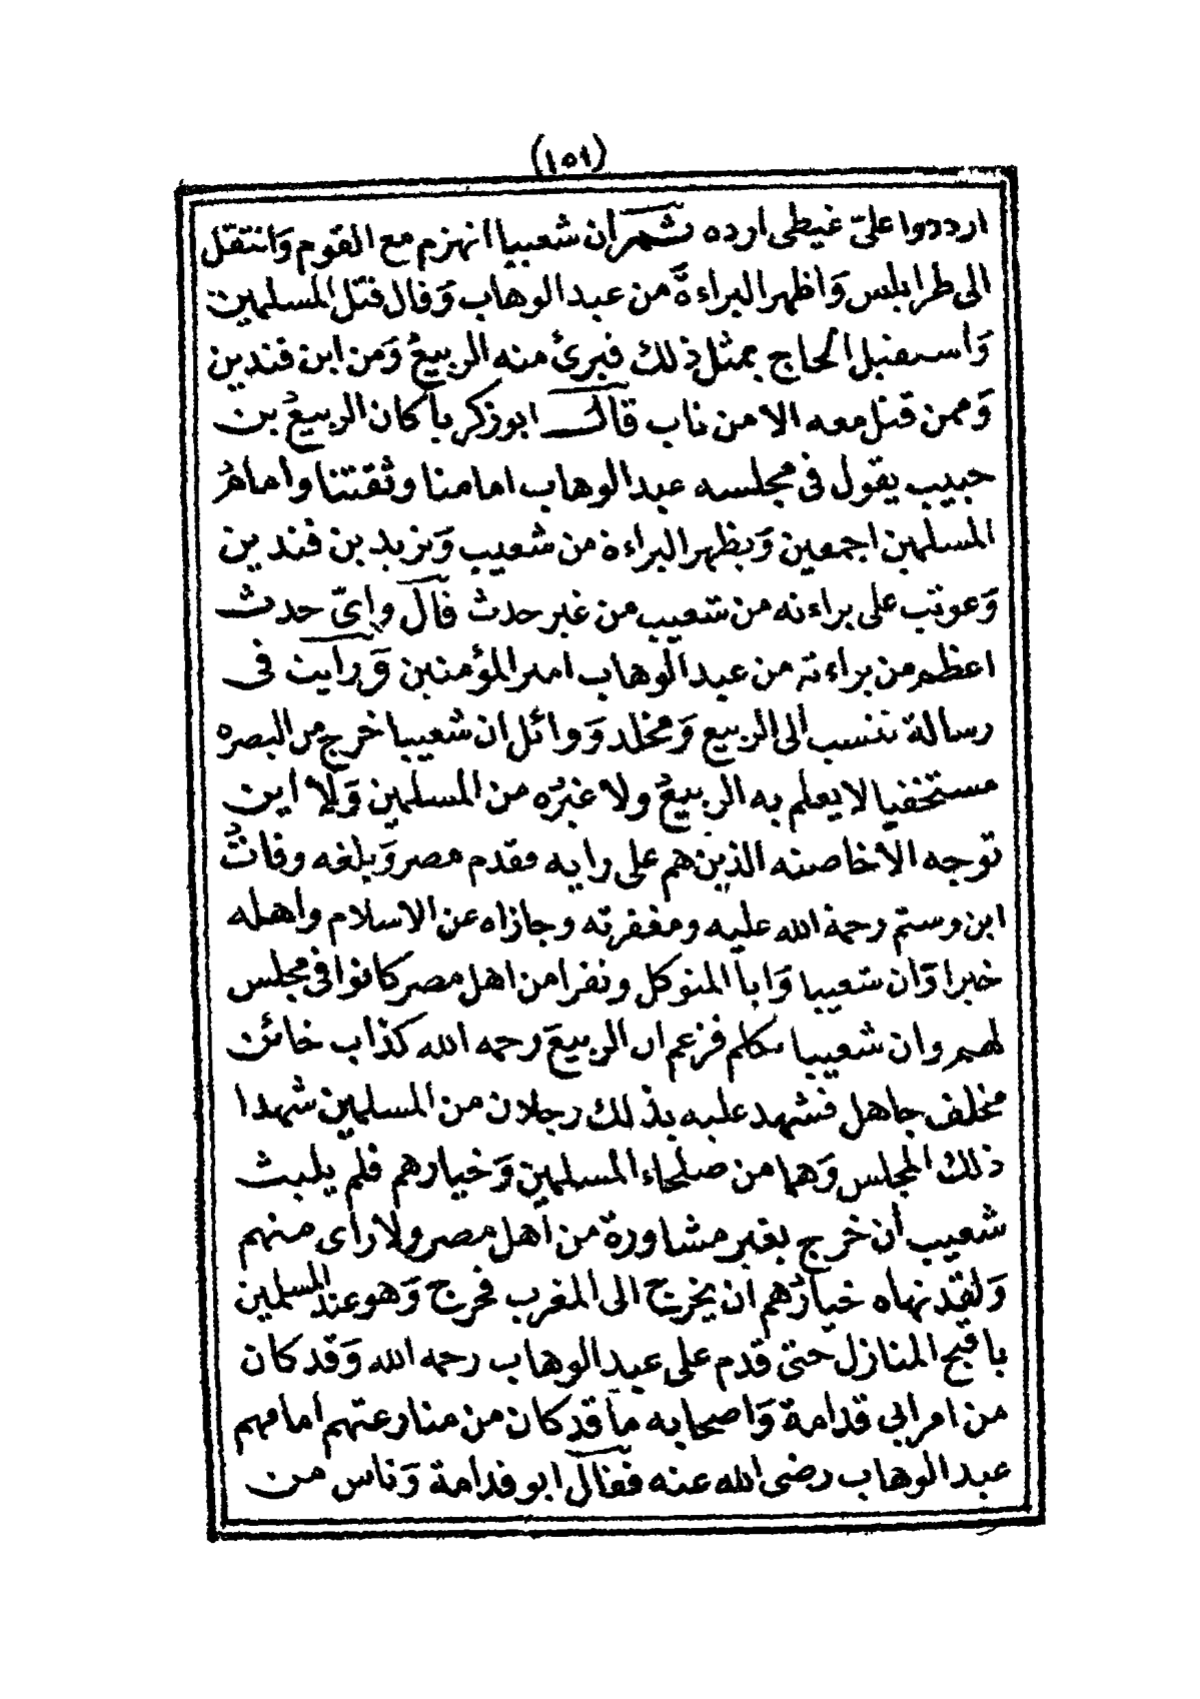 (١٥١)
ارددوا علىّ غيظى ارده ثم ان شعيبا انهزم مع القوم وَانتقل
الى طرابلس وَاظهر البراءة من عبد الوهاب وَقال قتل المسلمين
وَاستقبل الحاج بمثل ذلك فبرئ منه الربيعُ وَمن ابن فندين
وَممن قتل معه الا من تاب قال ابو زكرياَ كان الربيعُ بن
حبيب يقول فى مجلسه عبد الوهاب امامنا وثقتنا وامامُ
المسلمين اجمعين وَيظهر البراءة من شعيب وَيزيد بن فندين
وَعوتب على براءته من شعيب من غير حدث قال واىّ حدث
اعظم من براءته من عبد الوهاب امير المؤمنين وَرايت فى
رسالة تنسب الى الربيع وَمخلد وَوائل ان شعيبا خرج من البصره
مستخفيا لا يعلم به الربيعُ ولا غيرُه من المسلمين وَلا اين
توجه الا خاصته الذين هم على رايه فقدم مصر وَبلغه وفاتُ
ابن وستم رحمة الله عليه ومغفرته وجازاه عن الاسلام واهله
خيرا وَان شعيبا وَابا المتوكل ونفرا من اهل مصر كانوا فى مجلس
لهم وان شعيبا تكلم فزعم ان الربيعَ رحمه الله كذاب خائن
مخلف جاهل فشهد عليه بذلك رجلان من المسلمين شهدا
ذلك المجلس وَهما من صلحاء المسلمين وَخيارهم فلم يلبث
شعيب أن خرج بغير مشاورة من اهل مصر ولا راى منهم
وَلقد نهاه خيارُهم ان يخرج الى المغرب فخرج وَهو عند المسلمين
باقبح المنازل حتى قدم على عبد الوهاب رحمه الله وَقد كان
من امر ابى قدامة وَاصحابه ما قد كان من منازعتهم امامهم
عبد الوهاب رضى الله عنه فقال ابو قدامة وَناس من